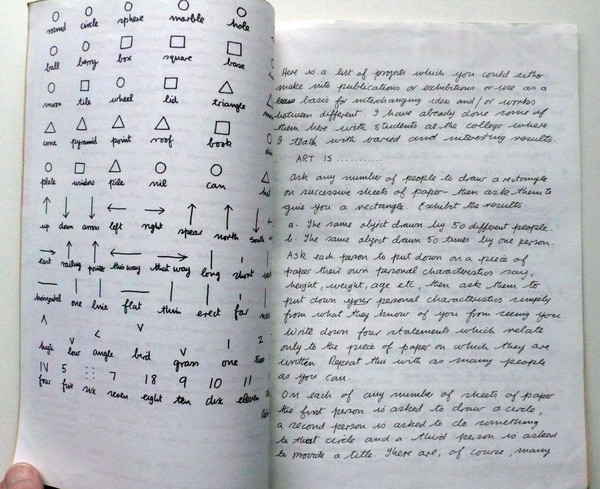 round circle sphere marble hole
ball berry box square base
moon tile wheel lid triangle
cone pyramid point roof book
plate window pile nil can
up down arrow left right spear north south
east pointer this way that way long short
horizontal one line flat thin erect far
high low angle bird grass one two
IV 5 7 18 9 10 11
four five six seven eight ten dix eleven
Here is a list of projects which you could either
make into publications or exhibitions or use as a
basis for interchanging ideas and/or works
between different. I have already done some of
them here with students at the college where
I teach with varied and interesting results.
ART IS ............
Ask any number of people to draw a rectangle
on successive sheets of paper - then ask them to
give you a rectangle. Exhibit the results.
a. The same object drawn by 50 different people.
b. The same object drawn 50 times by one person.
Ask each person to put down on a piece of
paper their own personal characteristics say,
height, weight, age etc, then ask them to
put down your personal characteristics simply
from what they know of you from seeing you.
Write down four statements which relate
only to the piece of paper on which they are
written. Repeat this with as many people
as you can.
On each of any number of sheets of paper
the first person is asked to draw a circle,
a second person is asked to do something
to that circle and a third person is asked
to provide a title. There are, of course, many